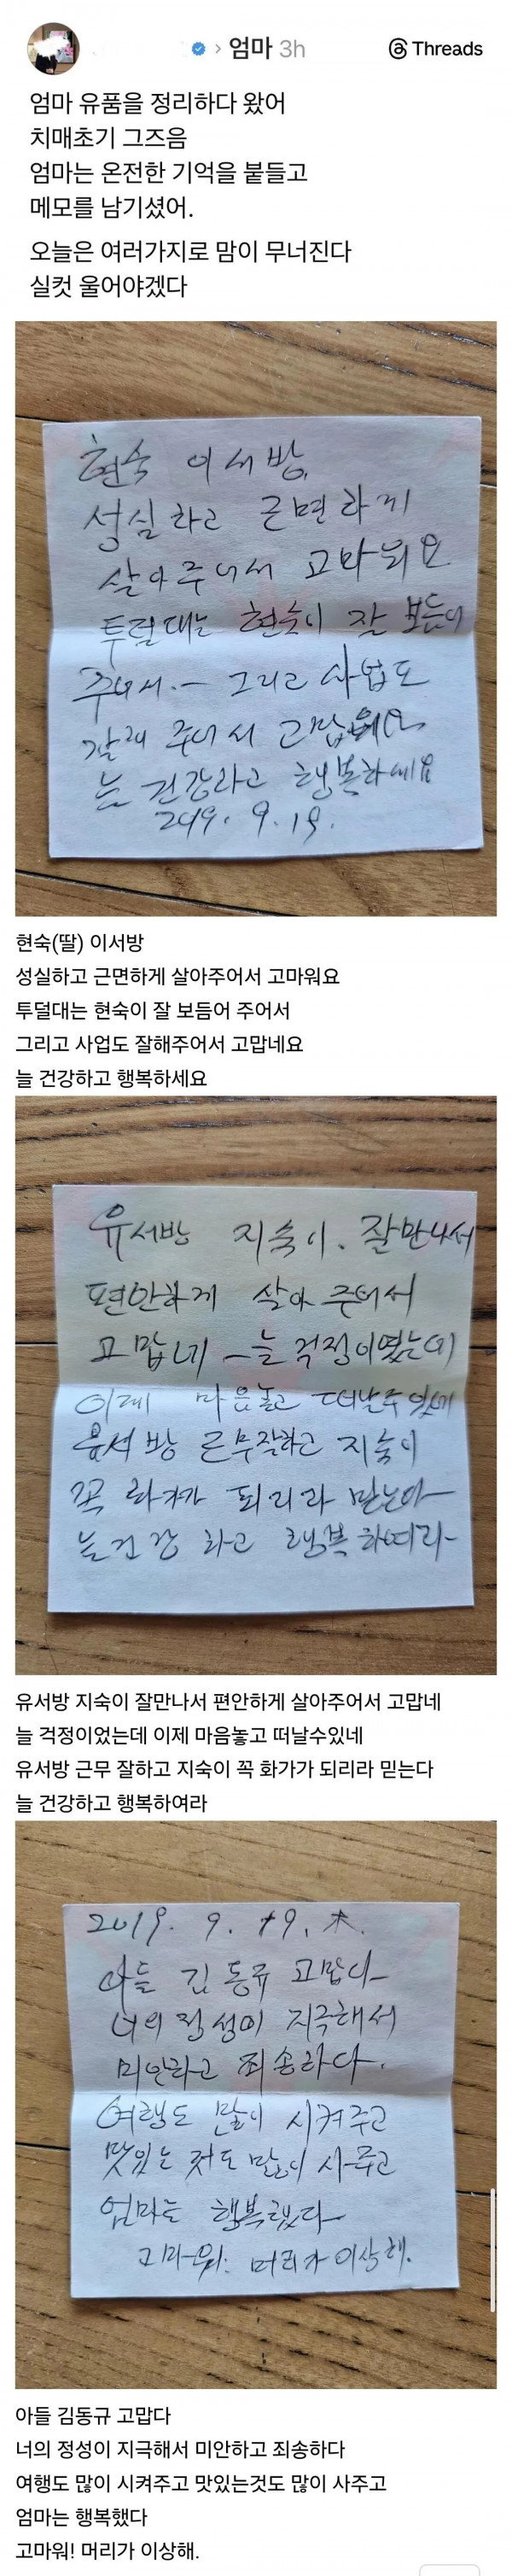 엄마 3h
Threads
엄마 유품을 정리하다 왔어
치매초기 그즈음
엄마는 온전한 기억을 붙들고
메모를 남기셨어.
오늘은 여러가지로 맘이 무너진다
실컷 울어야겠다
현숙 이서방
성실하고 근면하게
살아주어서 고마워요
투덜대는 현숙이 잘 보듬어
주어서. 그리고 사업도
잘해 주어서
늘 건강하고 행복하세요
2019. 9. 19.
현숙(딸) 이서방
성실하고 근면하게 살아주어서 고마워요
투덜대는 현숙이 잘 보듬어 주어서
그리고 사업도 잘해주어서 고맙네요
늘 건강하고 행복하세요
유서방 지숙이. 잘만나서
편안하게 살아 주어서
고맙네 늘 걱정이였는데
이제 마음놓고 떠날수있네
유서방 근무잘하고 지숙이
꼭 화가가 되리라 믿는다
늘건강 하고 행복하여라
유서방 지숙이 잘만나서 편안하게 살아주어서 고맙네
늘 걱정이었는데 이제 마음놓고 떠날수있네
유서방 근무 잘하고 지숙이 꼭 화가가 되리라 믿는다
늘 건강하고 행복하여라
2019. 9. 19. 木.
아들 김동규 고맙다
너의 정성이 지극해서
미안하고 죄송하다.
여행도 많이 시켜주고
맛있는 것도 많이 사주고
엄마는 행복했다
고마워. 머리가 이상해.
아들 김동규 고맙다
너의 정성이 지극해서 미안하고 죄송하다
여행도 많이 시켜주고 맛있는것도 많이 사주고
엄마는 행복했다
고마워! 머리가 이상해.